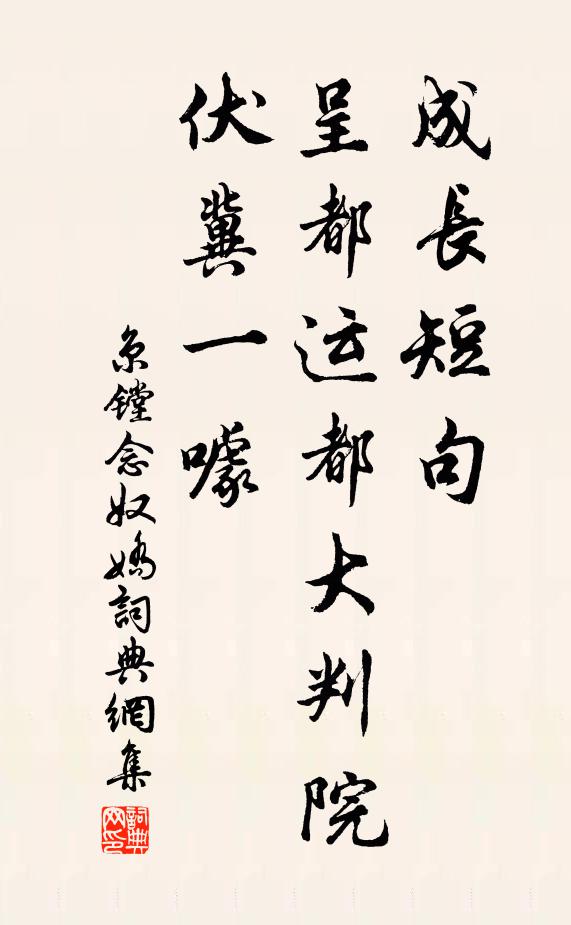 成長短句
呈都运都大判院
伏冀一噱
京鏜念奴嬌詞典網集
詞典网印